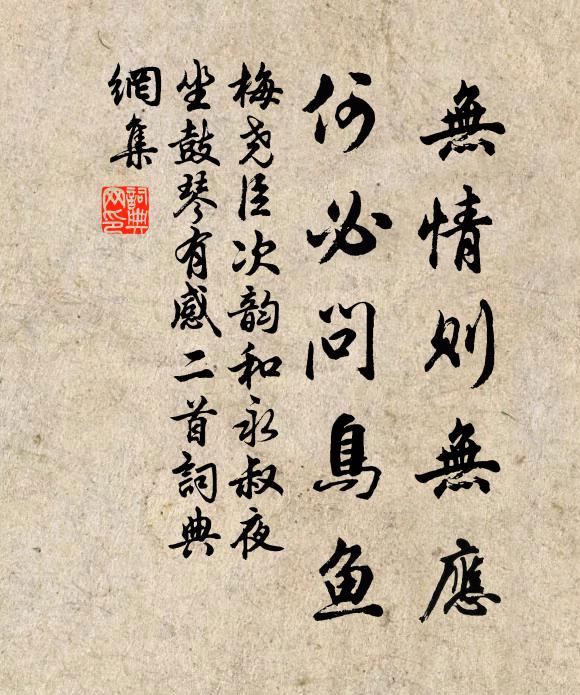 無情則無應
何必問鳥魚
梅尧臣次韵和永叔夜
坐鼓琴有感二首詞典
網集
詞典
网印